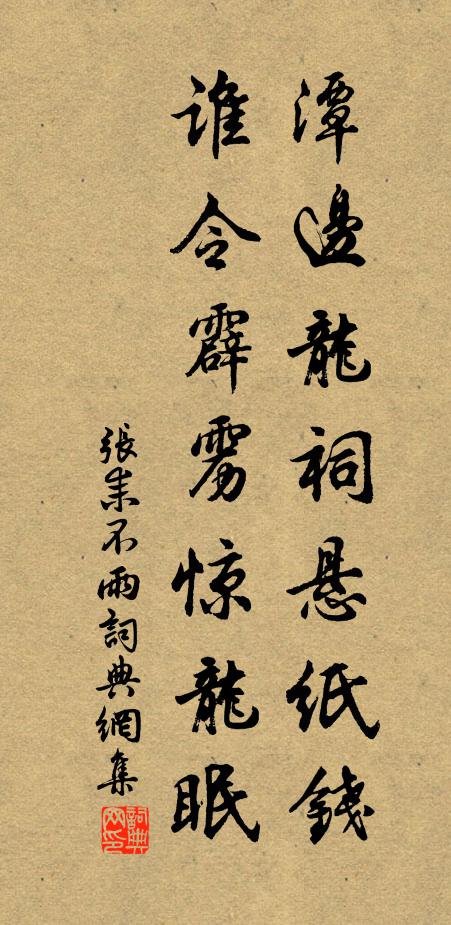 潭邊龍祠悬紙錢
誰令霹雳惊龍眠
張耒不雨詞典網集
詞典网印